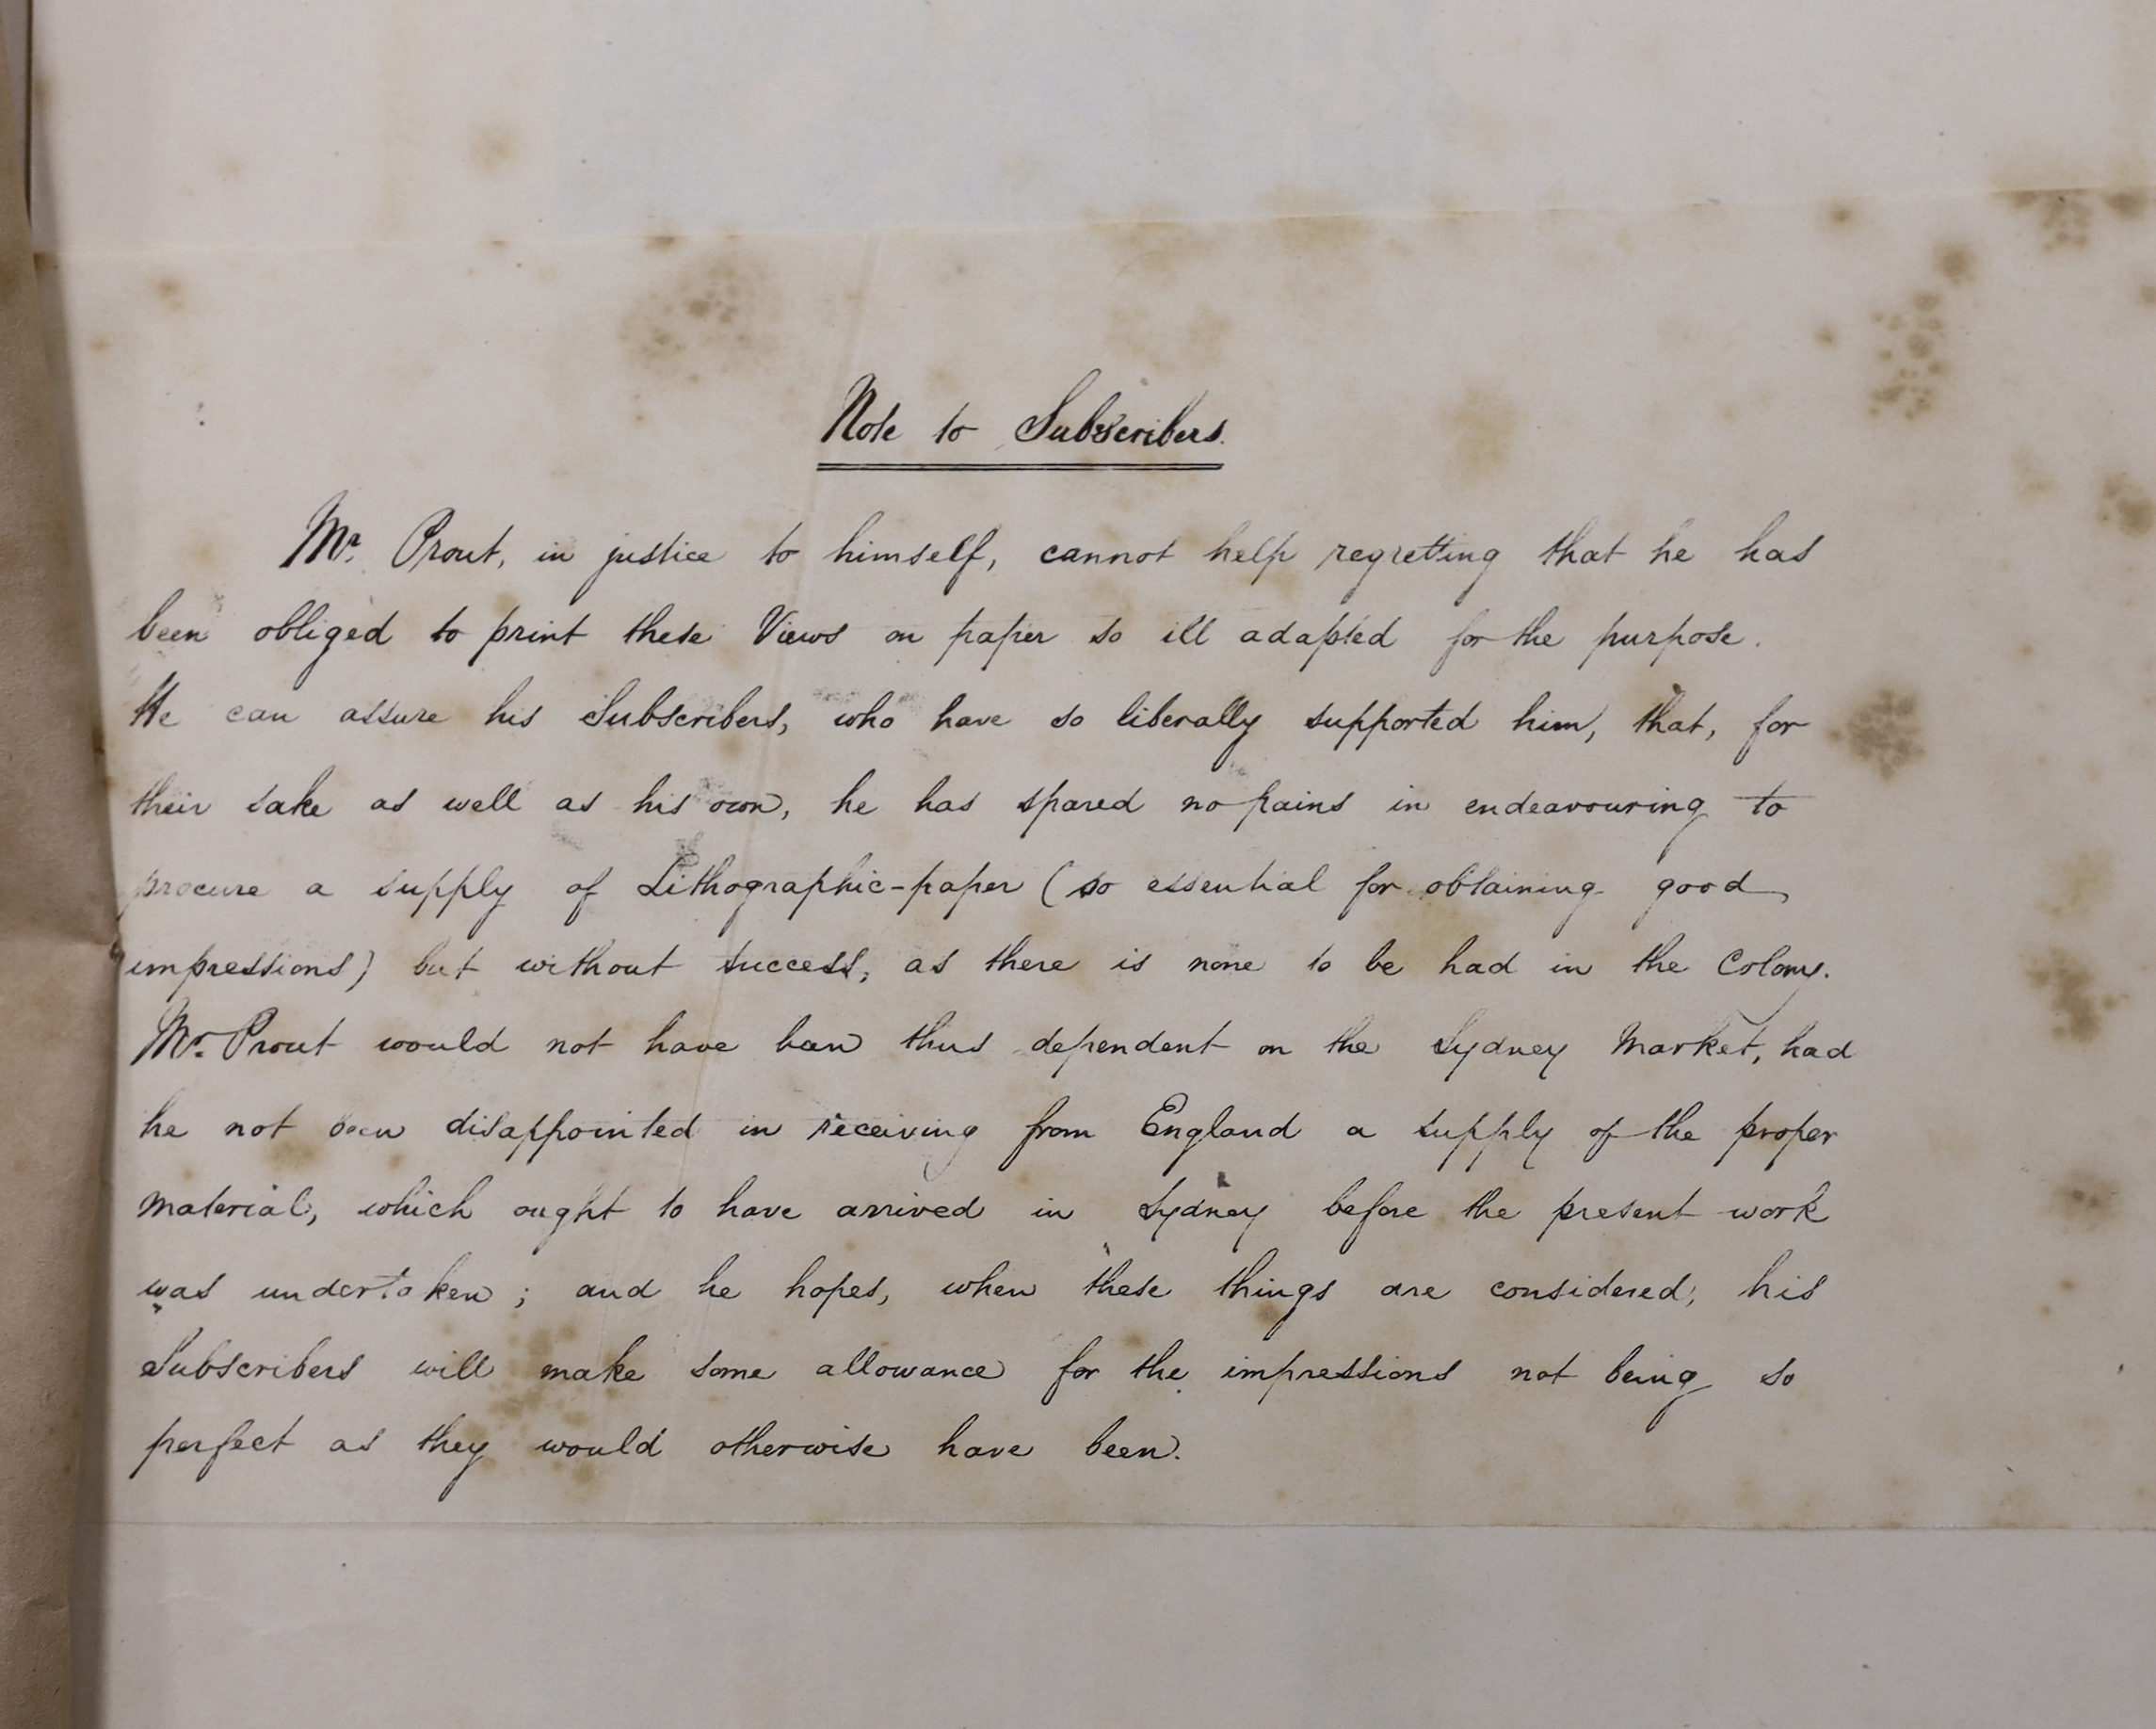 Note to Subscribers.
Mr. Prout, in justice to himself, cannot help regretting that he has
been obliged to print these Views on paper so ill adapted for the purpose.
He can assure his Subscribers, who have so liberally supported him, that, for
their sake as well as his own, he has spared no pains in endeavouring to
procure a supply of Lithographic-paper (so essential for obtaining good
impressions) but without success, as there is none to be had in the Colony.
Mr. Prout would not have been thus dependent on the Sydney Market, had
he not been disappointed in receiving from England a supply of the proper
material, which ought to have arrived in Sydney before the present work
was undertaken; and he hopes, when these things are considered, his
Subscribers will make some allowance for the impressions not being so
perfect as they would otherwise have been.